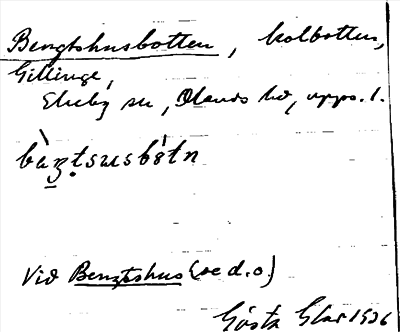 Bengtshusbotten, kolbotten,
Gillinge,
Ekeby sn, Olands hd, Upps. l.
bàŋ̱ṭsusbótn
Vid Bengtshus (se d.o.)
Gösta 1936